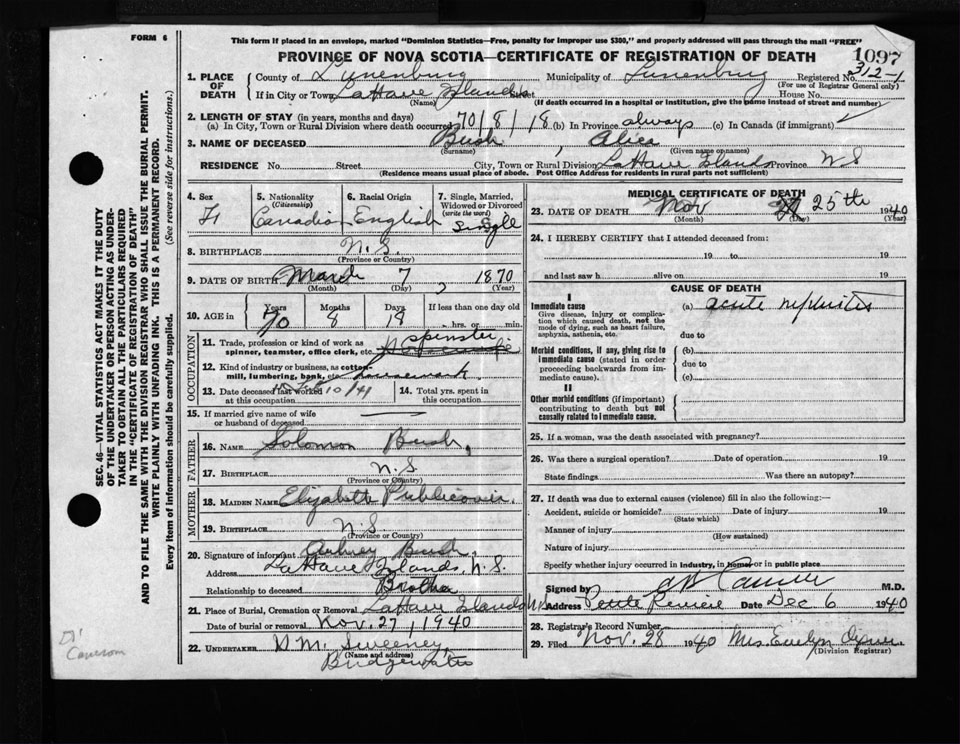 FORM 6
This form if placed in an envelope, marked "Dominion Statistics—Free, penalty for improper use $300," and properly addressed will pass through the mail "FREE"
PROVINCE OF NOVA SCOTIA—CERTIFICATE OF REGISTRATION OF DEATH
1097
312-1
1. PLACE OF DEATH
County of Lunenburg Municipality of Lunenburg Registered No.
(For use of Registrar General only)
If in City or Town LaHave Islands Street House No.
(Name) (If death occurred in a hospital or institution, give the name instead of street and number)
2. LENGTH OF STAY (in years, months and days)
(a) In City, Town or Rural Division where death occurred 70/8/18 (b) In Province always (c) In Canada (if immigrant)
3. NAME OF DECEASED Bush, Alice
(Surname) (Given name or names)
RESIDENCE No. Street City, Town or Rural Division LaHave Islands Province N S
(Residence means usual place of abode. Post Office Address for residents in rural parts not sufficient)
4. Sex F
5. Nationality (Citizenship) Canadian
6. Racial Origin English
7. Single, Married, Widowed or Divorced (write the word) Single
8. BIRTHPLACE N.S.
(Province or Country)
9. DATE OF BIRTH March 7, 1870
(Month) (Day) (Year)
10. AGE in Years Months Days If less than one day old
70 8 18 hrs. or min.
OCCUPATION
11. Trade, profession or kind of work as spinner, teamster, office clerk, etc. spinster
12. Kind of industry or business, as cotton-mill, lumbering, bank, etc. housework
13. Date deceased last worked at this occupation
14. Total yrs. spent in this occupation
15. If married give name of wife or husband of deceased —
FATHER
16. Name Solomon Bush,
17. BIRTHPLACE N.S.
(Province or Country)
MOTHER
18. MAIDEN NAME Elizabeth Publicover.
19. BIRTHPLACE N.S.
(Province or Country)
20. Signature of informant Aubrey Bush.
Address LaHave Islands, N.S.
Relationship to deceased Brother
21. Place of Burial, Cremation or Removal LaHave Islands N.S.
Date of burial or removal Nov. 27, 1940
22. UNDERTAKER Sweeney,
(Name and address)
Bridgewater
MEDICAL CERTIFICATE OF DEATH
23. DATE OF DEATH Nov 25th 1940
(Month) (Day) (Year)
24. I HEREBY CERTIFY that I attended deceased from:
19 to 19
and last saw h alive on 19
CAUSE OF DEATH
I
Immediate cause (a) acute nephritis
Give disease, injury or complication which caused death, not the mode of dying, such as heart failure, asphyxia, asthenia, etc.
due to
Morbid conditions, if any, giving rise to immediate cause (stated in order proceeding backwards from immediate cause).
(b)
due to
(c)
II
Other morbid conditions (if important) contributing to death but not causally related to immediate cause.
25. If a woman, was the death associated with pregnancy?
26. Was there a surgical operation? Date of operation 19
State findings Was there an autopsy?
27. If death was due to external causes (violence) fill in also the following:—
Accident, suicide or homicide? Date of injury 19
(State which)
Manner of injury
(How sustained)
Nature of injury
Specify whether injury occurred in industry, in home or in public place
Signed by M.D.
Address Petite Riviere Date Dec 6 1940
28. Registrar's Record Number
29. Filed Nov. 28 1940 Mrs. Evelyn
(Division Registrar)
SEC. 46—VITAL STATISTICS ACT MAKES IT THE DUTY
OF THE UNDERTAKER OR PERSON ACTING AS UNDER-
TAKER TO OBTAIN ALL THE PARTICULARS REQUIRED
IN THE "CERTIFICATE OF REGISTRATION OF DEATH"
AND TO FILE THE SAME WITH THE DIVISION REGISTRAR WHO SHALL ISSUE THE BURIAL PERMIT.
WRITE PLAINLY WITH UNFADING INK. THIS IS A PERMANENT RECORD.
Every item of information should be carefully supplied. (See reverse side for instructions.)
Cameron